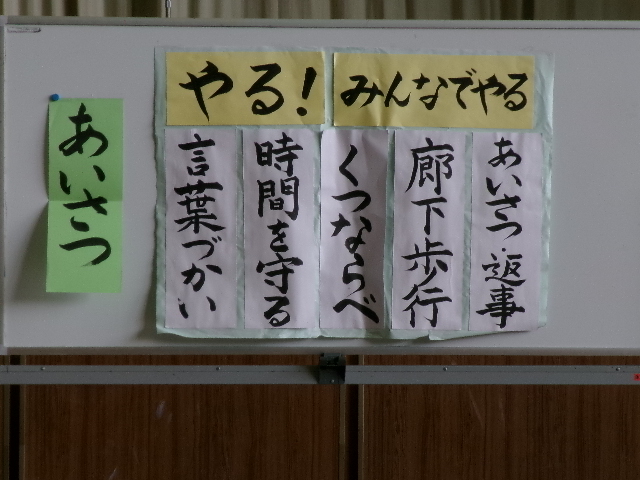 やる!
みんなでやる
あいさつ 返事
廊下歩行
くつならべ
時間を守る
言葉づかい
あいさつ